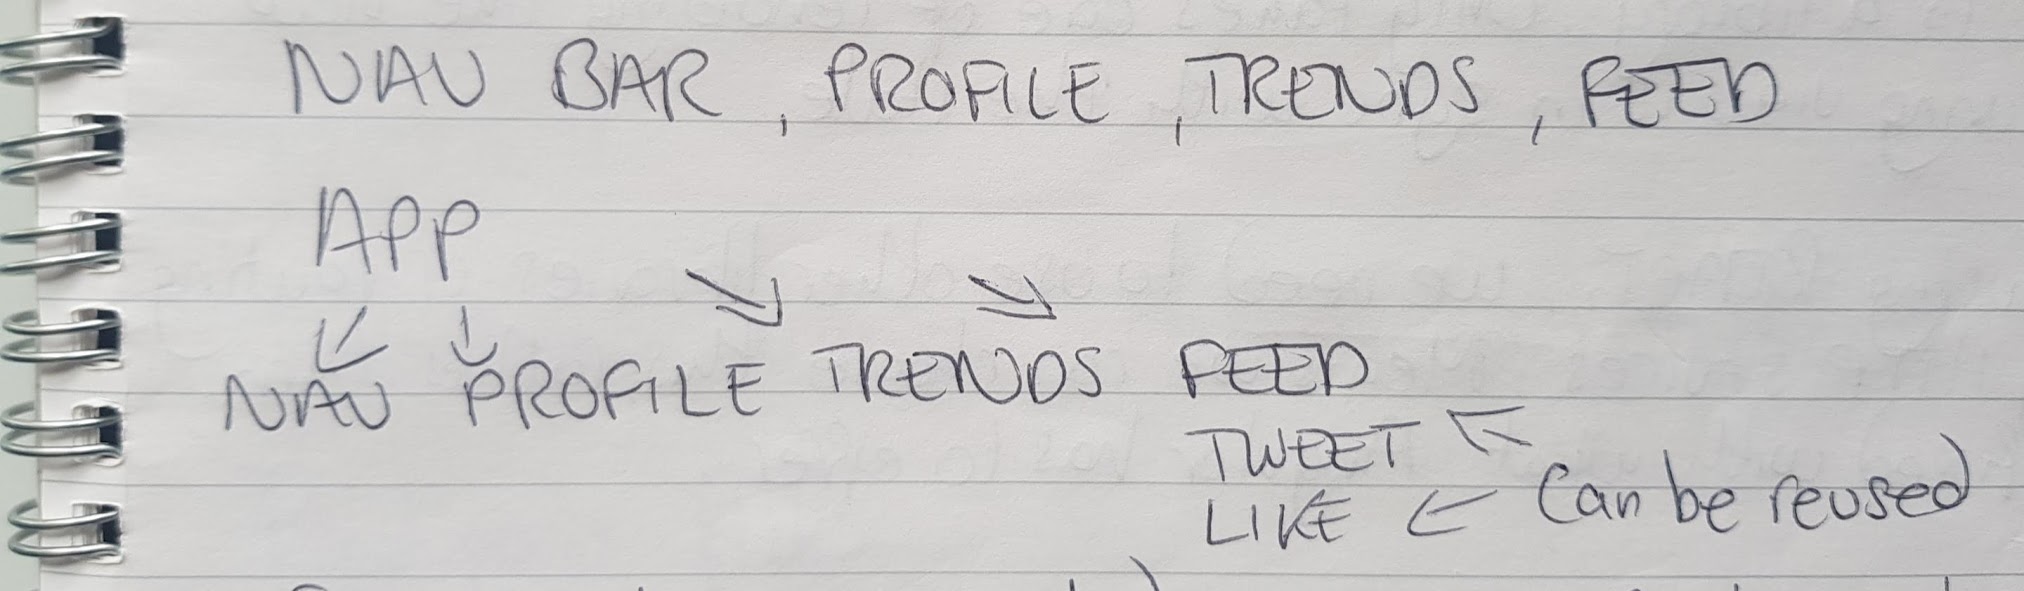 NAV BAR, PROFILE, TRENDS, FEED
APP
NAV PROFILE TRENDS FEED
TWEET
LIKE
Can be reused